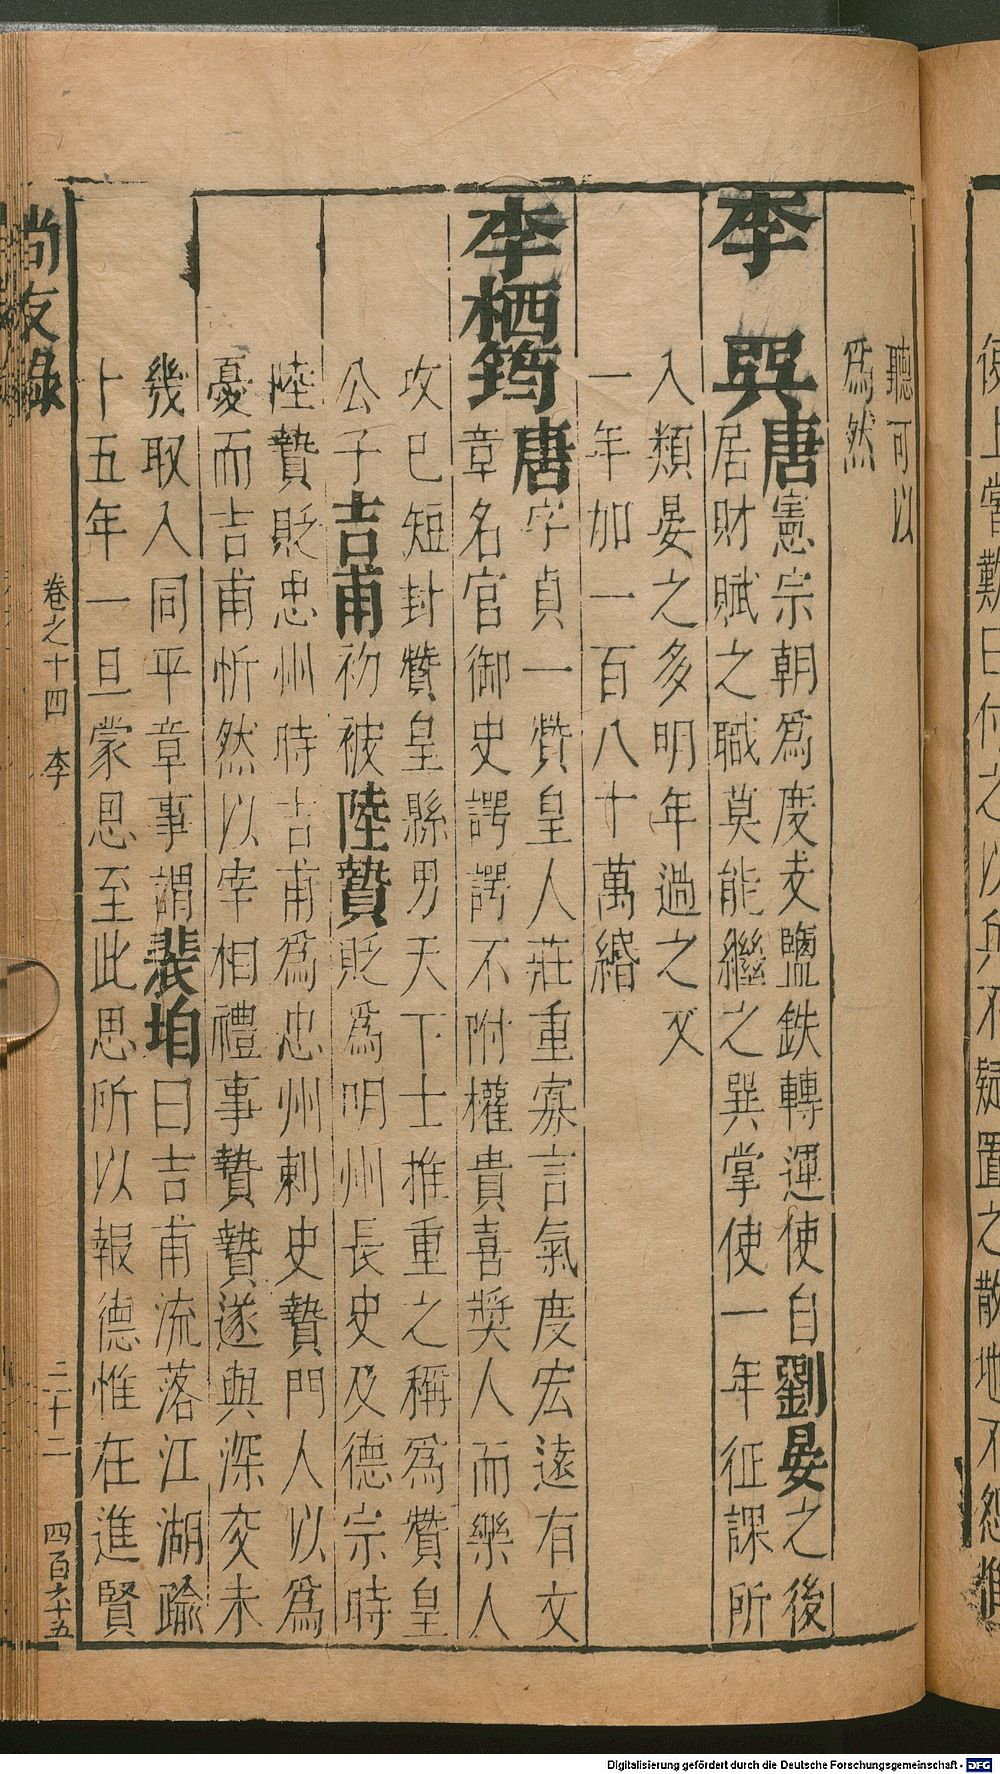 聽可以
爲然
李巽唐憲宗朝爲度支鹽鉄轉運使自劉晏之後
居財賦之職莫能繼之巽掌使一年征課所
入類晏之多明年過之又
一年加一百八十萬緡
李栖筠唐字貞一贊皇人莊重寡言氣度宏遠有文
章名官御史諤諤不附權貴喜奬人而樂人
攻已短封贊皇縣男天下士推重之稱爲贊皇
公子吉甫初被陸贄貶爲明州長史及德宗時
陸贄貶忠州時吉甫爲忠州刺史贄門人以爲
憂而吉甫忻然以宰相禮事贄贄遂與深交未
幾取入同平章事謂裴垍曰吉甫流落江湖踰
十五年一旦蒙恩至此思所以報德惟在進賢
尚友錄 卷之十四 李 二十二 四百六十五
復上嘗歎曰付之以兵不疑置之散地不怨惟
Digitalisierung gefördert durch die Deutsche Forschungsgemeinschaft - DFG